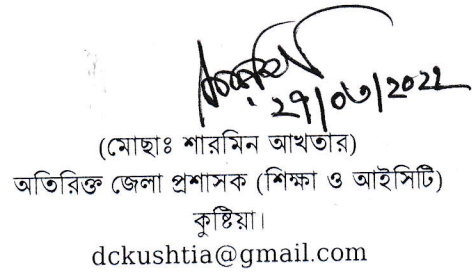 (মোছাঃ শারমিন আখতার)
অতিরিক্ত জেলা প্রশাসক (শিক্ষা ও আইসিটি)
কুষ্টিয়া।
dckushtia@gmail.com